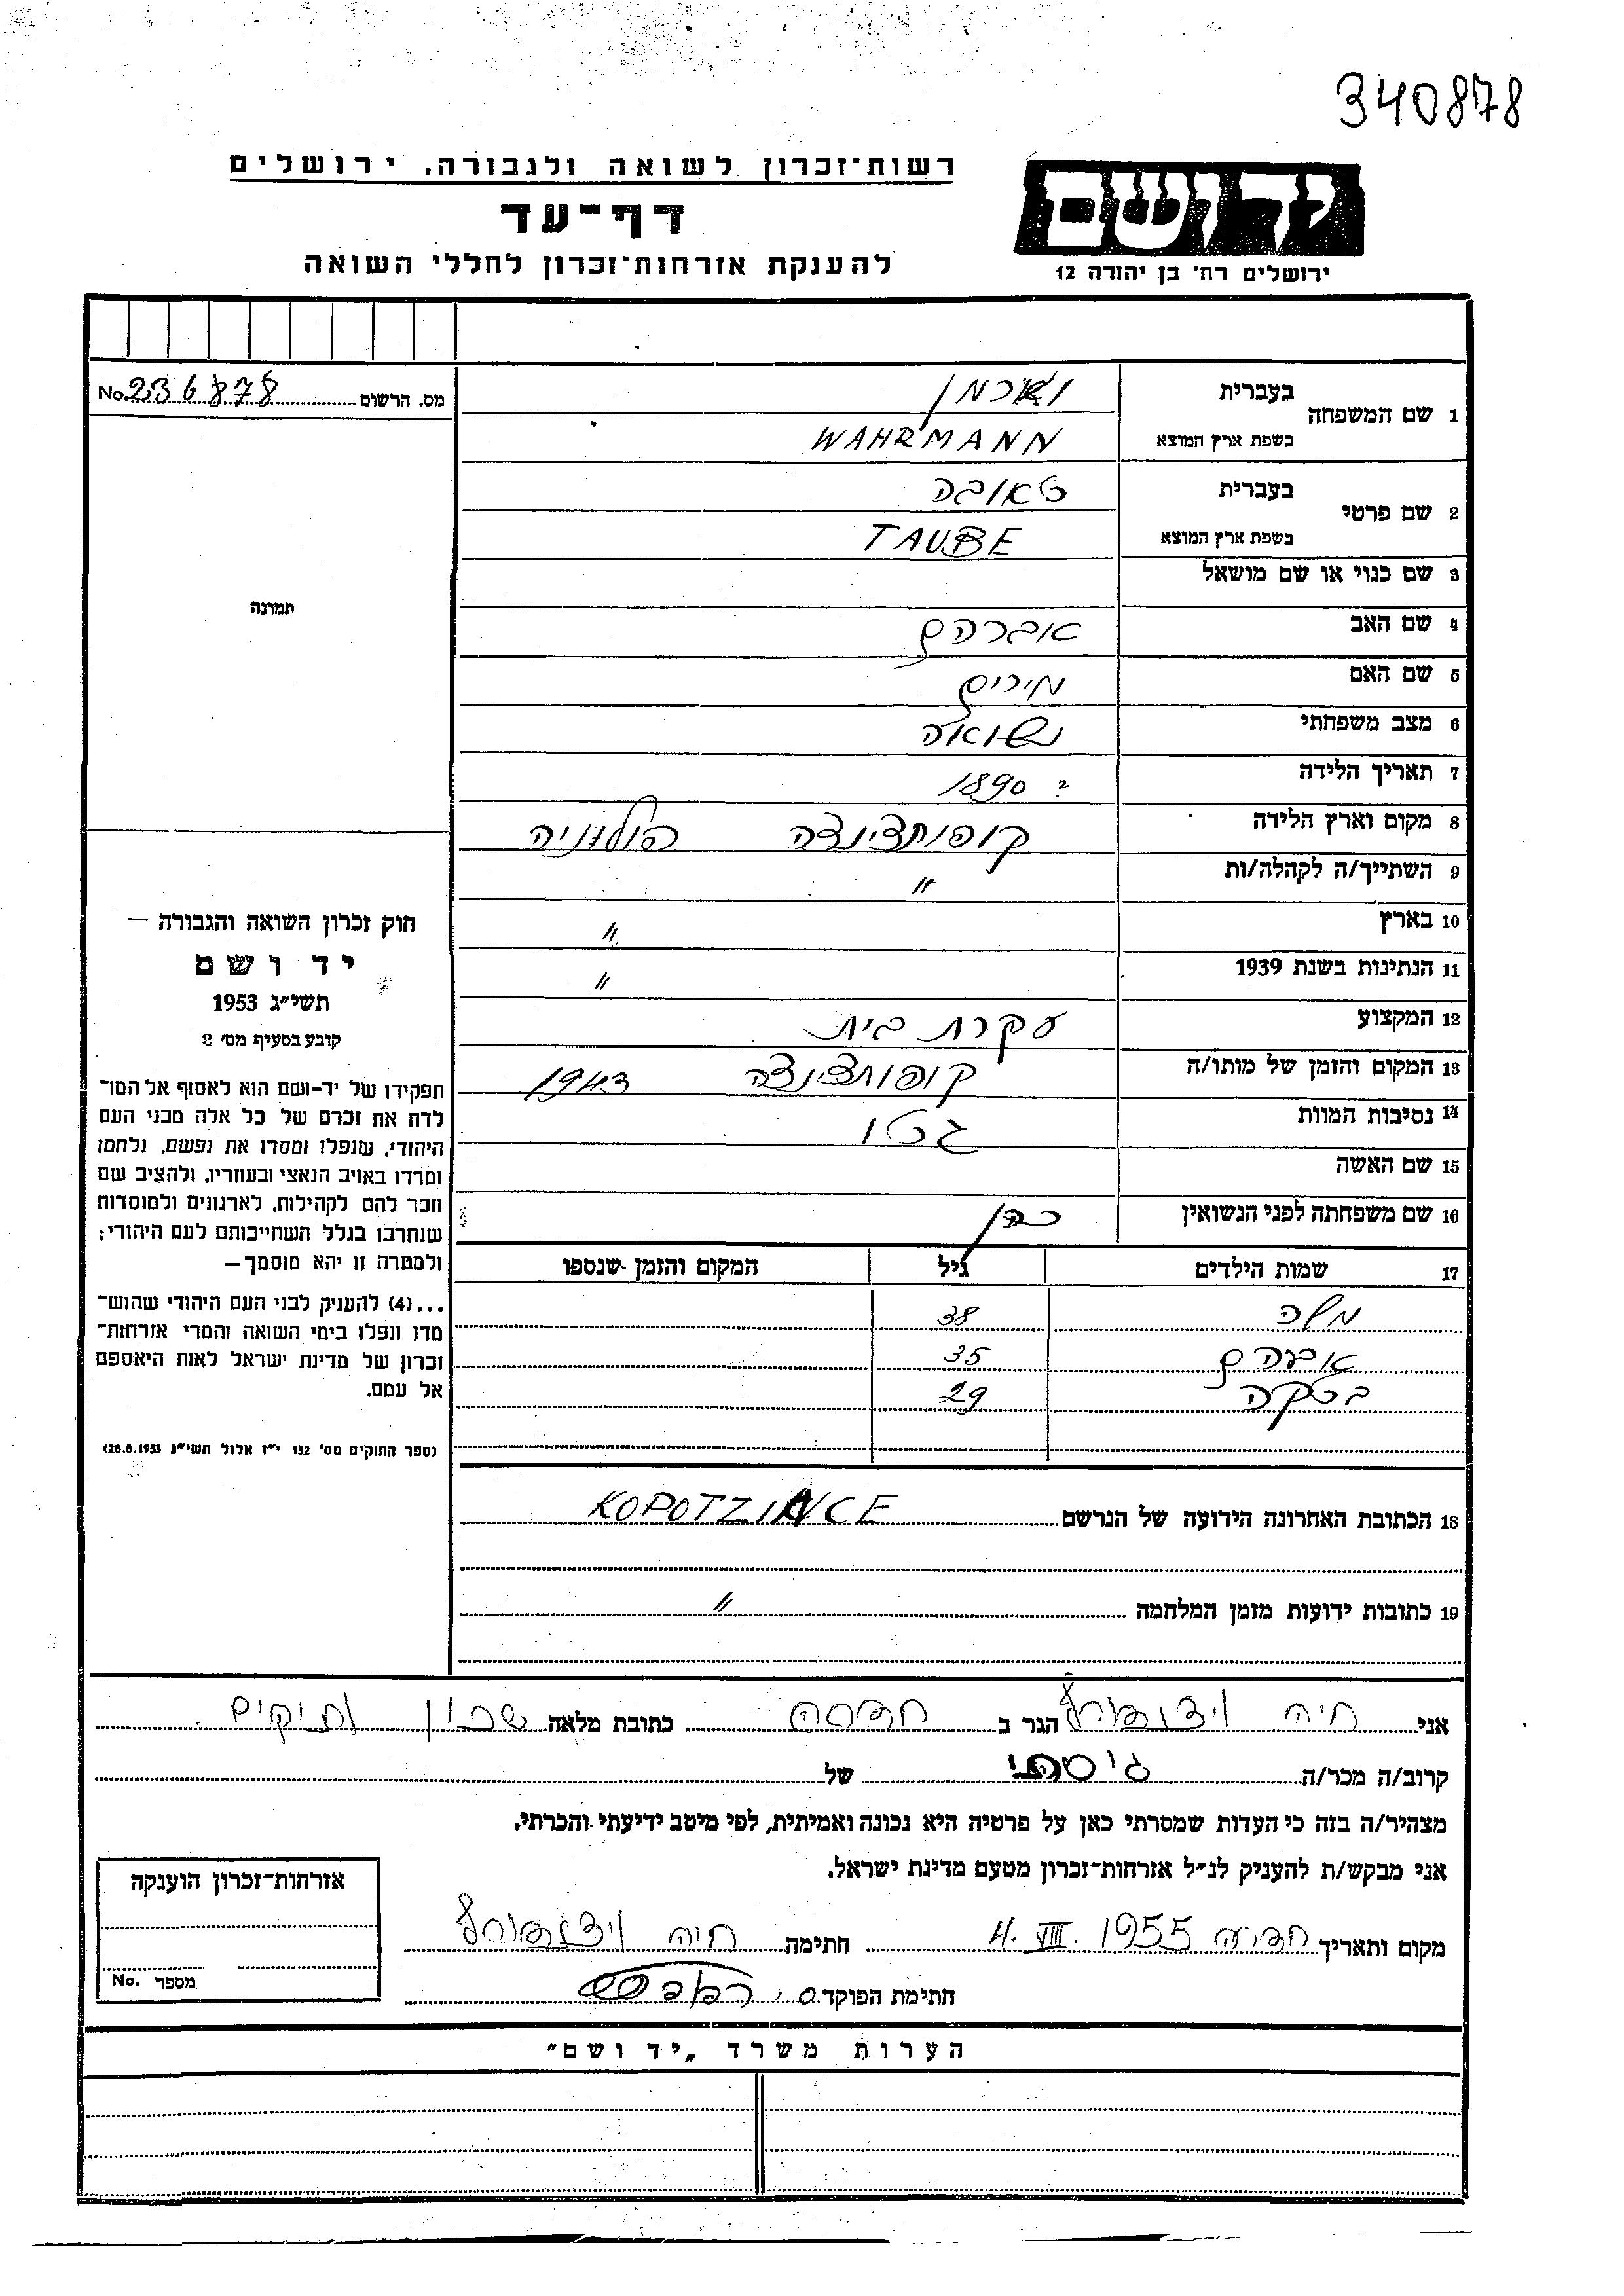 340878
יד ושם
ירושלים רח׳ בן יהודה 12
רשות־זכרון לשואה ולגבורה, ירושלים
דף־עד
להענקת אזרחות־זכרון לחללי השואה
מס. הרשום No. 236878
תמונה
1 שם המשפחה בעברית
בשפת ארץ המוצא WAHRMANN
2 שם פרטי בעברית טאובה
בשפת ארץ המוצא TAUBE
3 שם כנוי או שם מושאל
4 שם האב אברהם
5 שם האם מירים
6 מצב משפחתי נשואה
7 תאריך הלידה ? 1890
8 מקום וארץ הלידה קופוצינצה פולניה
9 השתייך/ה לקהלה/ות "
10 בארץ "
11 הנתינות בשנת 1939 "
12 המקצוע עקרת בית
13 המקום והזמן של מותו/ה קופוצינצה 1943
14 נסיבות המוות גטו
15 שם האשה
16 שם משפחתה לפני הנשואין כהן
17 שמות הילדים גיל המקום והזמן שנספו
מלה 38
אברהם 35
29
18 הכתובת האחרונה הידועה של הנרשם KOPOTZINCE
19 כתובות ידועות מזמן המלחמה "
חוק זכרון השואה והגבורה —
יד ושם
תשי״ג 1953
קובע בסעיף מס׳ 2
תפקידו של יד-ושם הוא לאסוף אל המו־
לדת את זכרם של כל אלה מבני העם
היהודי, שנפלו ומסרו את נפשם, נלחמו
ומרדו באויב הנאצי ובעוזריו, ולהציב שם
וזכר להם לקהילות, לארגונים ולמוסדות
שנחרבו בגלל השתייכותם לעם היהודי;
ולמטרה זו יהא מוסמך —
...(4) להעניק לבני העם היהודי שהוש־
מדו ונפלו בימי השואה והמרי אזרחות־
זכרון של מדינת ישראל לאות היאספם
אל עמם.
(ספר החוקים מס׳ 132 י״ז אלול תשי״ג 28.8.1953)
אני חיה הגר ב חדרה כתובת מלאה שכון ותיקים
קרוב/ה מכר/ה גיסתי של
מצהיר/ה בזה כי העדות שמסרתי כאן על פרטיה היא נכונה ואמיתית, לפי מיטב ידיעתי והכרתי.
אני מבקש/ת להעניק לנ״ל אזרחות־זכרון מטעם מדינת ישראל.
מקום ותאריך חדרה 4. VIII. 1955 חתימה חיה
חתימת הפוקד
אזרחות־זכרון הוענקה
מספר No.
הערות משרד „יד ושם״